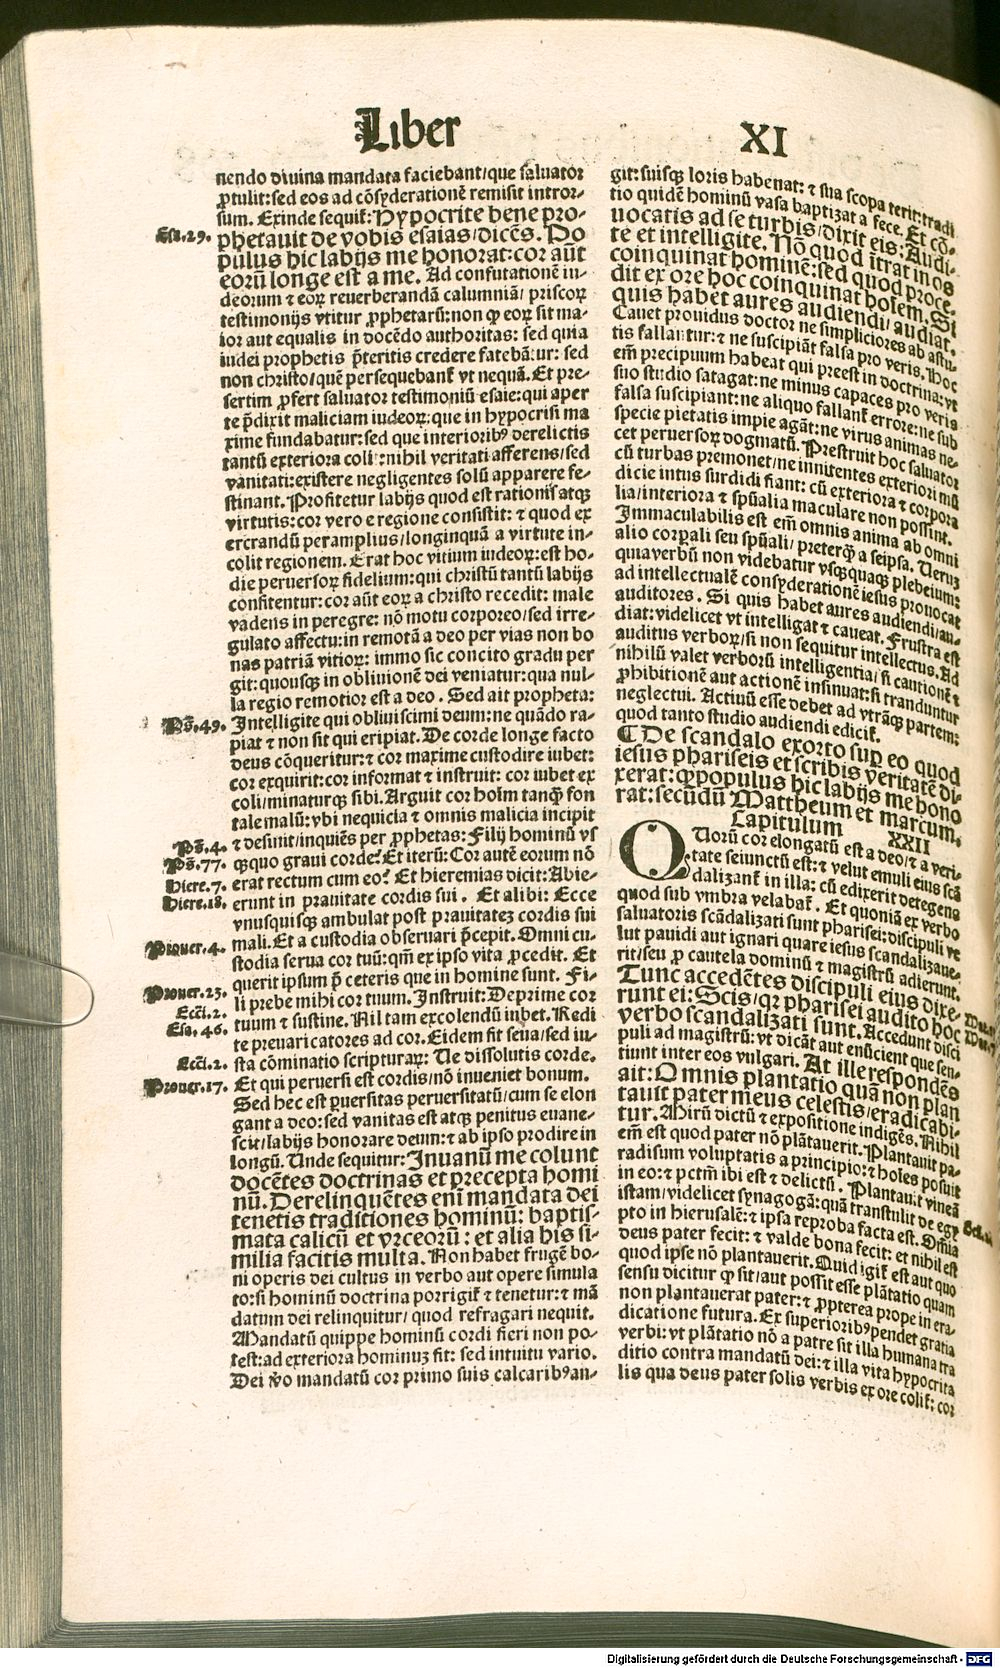 Liber XI
nendo diuina mandata faciebant/que saluator
ꝓtulit: sed eos ad cōsyderationē remisit intror-
sum. Exinde sequit̄: Hypocrite bene pro-
Esa.29.
phetauit de vobis esaias/dicēs. Po
pulus hic labijs me honorat: cor aūt
eorū longe est a me. Ad confutationē iu-
deorum ⁊ eoꝝ reuerberandā calumniā/ priscoꝝ
testimonijs vtitur ꝓphetarū: non ꝙ eoꝝ sit ma-
ior aut equalis in docēdo authoritas: sed quia
iudei prophetis p̄teritis credere fatebātur: sed
non christo/quē persequebant̄ vt nequā. Et pre-
sertim ꝓfert saluator testimoniū esaie: qui aper
te p̄dixit maliciam iudeoꝝ: que in hypocrisi ma
xime fundabatur: sed que interioribꝰ derelictis
tantū exteriora coli: nihil veritati afferens/sed
vanitati: existere negligentes solū apparere fe-
stinant. Profitetur labijs quod est rationis atqꝫ
virtutis: cor vero e regione consistit: ⁊ quod ex
ercrandū peramplius/longinquā a virtute in-
colit regionem. Erat hoc vitium iudeoꝝ: est ho-
die peruersoꝝ fidelium: qui christū tantū labijs
confitentur: cor aūt eoꝝ a christo recedit: male
vadens in peregre: nō motu corporeo/sed irre-
gulato affectu: in remotā a deo per vias non bo
nas patriā vitioꝝ: immo sic concito gradu per
git: quousqꝫ in obliuionē dei veniatur: qua nul-
la regio remotior est a deo. Sed ait propheta:
Ps̄.49.
Intelligite qui obliuiscimi deum: ne quādo ra-
piat ⁊ non sit qui eripiat. De corde longe facto
deus cōqueritur: ⁊ cor maxime custodire iubet:
cor exquirit: cor informat ⁊ instruit: cor iubet ex
coli/minaturqꝫ sibi. Arguit cor hoīm tanqꝫ fon
tale malū: vbi nequicia ⁊ omnis malicia incipit
Ps̄.4.
⁊ desinit/inquiēs per ꝓphetas: Filij hominū vs
Ps̄.77.
qꝫquo graui corde? Et iterū: Cor autē eorum nō
Hiere.7.
erat rectum cum eo? Et hieremias dicit: Abie-
Hiere.18.
erunt in prauitate cordis sui. Et alibi: Ecce
vnusquisqꝫ ambulat post prauitatez cordis sui
Prouer.4.
mali. Et a custodia obseruari p̄cepit. Omni cu-
stodia serua cor tuū: qm̄ ex ipso vita ꝓcedit. Et
querit ipsum p̄ ceteris que in homine sunt. Fi-
Prouer.23.
li prebe mihi cor tuum. Instruit: Deprime cor
Ecc̄i.2.
Esa. 46.
tuum ⁊ sustine. Nil tam excolendū iubet. Redi
te preuaricatores ad cor. Eidem fit seua/sed iu-
Ecc̄i.2.
sta cōminatio scripturaꝝ: Ue dissolutis corde.
Prouer.17.
Et qui peruersi est cordis/nō inueniet bonum.
Sed hec est ꝑuersitas peruersitatū/cum se elon
gant a deo: sed vanitas est atqꝫ penitus euane-
scit/labijs honorare deum: ⁊ ab ipso prodire in
longū. Unde sequitur: Inuanū me colunt
docētes doctrinas et precepta homi
nū. Derelinquētes enī mandata dei
tenetis traditiones hominū: baptis-
mata calicū et vrceorū: et alia his si-
milia facitis multa. Non habet frugē bo-
ni operis dei cultus in verbo aut opere simula
to: si hominū doctrina porrigit̄ ⁊ tenetur: ⁊ mā
datum dei relinquitur/ quod refragari nequit.
Mandatū quippe hominū cordi fieri non po-
test: ad exteriora hominuz fit: sed intuitu vario.
Dei v̄o mandatū cor primo suis calcaribꝰ an-
git: suisqꝫ loris habenat: ⁊ sua scopa terit: tradi
tio quidē hominū vasa baptizat a fece. Et cō-
uocatis ad se turbis/dixit eis: Audi-
te et intelligite. Nō quod ītrat in os
coinquinat hominē: sed quod proce-
dit ex ore hoc coinquinat hoīem. Si
quis habet aures audiendi/audiat.
Cauet prouidus doctor ne simpliciores ab astu
tis fallantur: ⁊ ne suscipiāt falsa pro veris. Hoc
em̄ precipuum habeat qui preest in doctrina: vt
suo studio satagat: ne minus capaces pro veris
falsa suscipiant: ne aliquo fallant̄ errore: ne sub
specie pietatis impie agāt: ne virus animas ne-
cet peruersoꝝ dogmatū. Prestruit hoc saluator
cū turbas premonet/ne innitentes exteriori mū
dicie intus surdidi fiant: cū exteriora ⁊ corpora
lia/interiora ⁊ spūalia maculare non possint.
Immaculabilis est em̄ omnis anima ab omni
alio corꝑali seu spūali/ preterqꝫ a seipsa. Ueruz
quia verbū non videbatur vsqꝫquaqꝫ plebeium:
ad intellectualē consyderationē iesus prouocat
auditores. Si quis habet aures audiendi/au-
diat: videlicet vt intelligat ⁊ caueat. Frustra est
auditus verboꝝ/si non sequitur intellectus. Ad
nihilū valet verborū intelligentia/ si cautionē ⁊
ꝓhibitionē aut actionē insinuat: si tranduntur
neglectui. Actiuū esse debet ad vtrāqꝫ partem:
quod tanto studio audiendi edicit̄.
¶ De scandalo exorto suꝑ eo quod
iesus phariseis et scribis veritatē di-
xerat: ꝙ populus hic labijs me hono
rat: secūdū Mattheum et marcum.
Capitulum XXII
QUorū cor elongatū est a deo/⁊ a veri-
tate seiunctū est: ⁊ velut emuli eius scā
dalizant̄ in illa: cū edixerit detegens
quod sub vmbra velabat̄. Et quoniā ex verbo
saluatoris scādalizati sunt pharisei: discipuli ve
lut pauidi aut ignari quare iesus scandalizaue-
rit/seu ꝓ cautela dominū ⁊ magistrū adierunt.
Tunc accedētes discipuli eius dixe-
runt ei: Scis/qꝛ pharisei audito hoc
verbo scandalizati sunt. Accedunt disci
puli ad magistrū: vt dicāt aut enūcient que sen-
tiunt inter eos vulgari. At ille respondēs
ait: Omnis plantatio quā non plan
tauit pater meus celestis/eradicabi-
tur. Mirū dictū ⁊ expositione indigēs. Nihil
em̄ est quod pater nō plātauerit. Plantauit pa-
radisum voluptatis a principio: ⁊ hoīes posuit
in eo: ⁊ pctm̄ ibi est ⁊ delictū. Plantauit vineā
istam/videlicet synagogā: quā transtulit de egy
pto in hierusalē: ⁊ ipsa reproba facta est. Oīa
deus pater fecit: ⁊ valde bona fecit: et nihil est
quod ipse nō plantauerit. Quid igit̄ est aut quo
sensu dicitur ꝙ sit/aut possit esse plātatio quam
non plantauerat pater: ⁊ ꝓpterea prope in era-
dicatione futura. Ex superioribꝰ pendet gratia
verbi: vt plātatio nō a patre sit illa humana tra
ditio contra mandatū dei: ⁊ illa vita hypocrita
lis qua deus pater solis verbis ex ore colit̄: cor
Digitalisierung gefördert durch die Deutsche Forschungsgemeinschaft - DFG